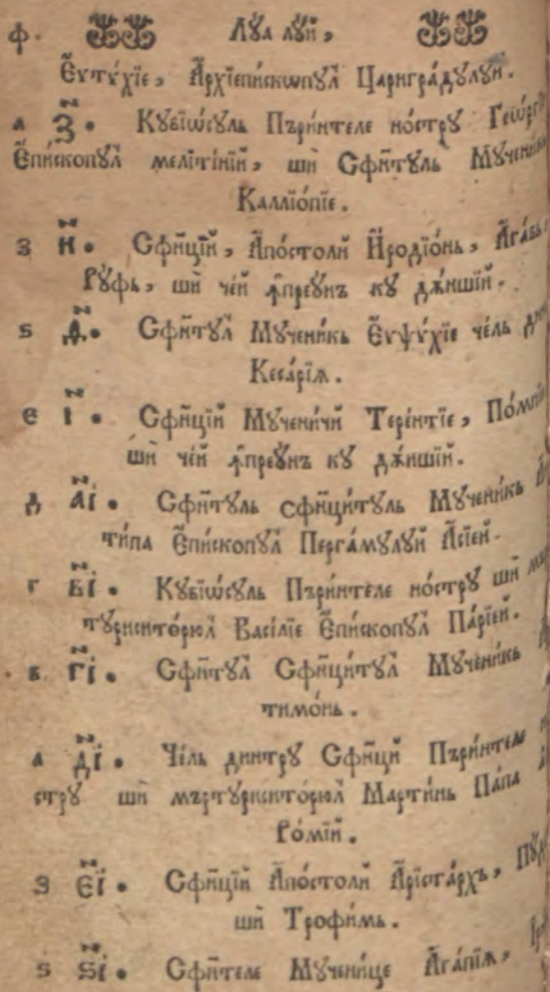 ф. Лꙋ́а лꙋй,
Єѵтѵ́хїе, А҆рхїепі́скѡпꙋл Цариграⷣꙋлꙋй.
а З҃. Кꙋвїѡ́сꙋль Пъри́нтеле но́стрꙋ
Єпі́скопꙋл мелїті́нїй, ши Сфи́тꙋль
Каллїо́пїе.
з И҃. Сфи́цїй, А҆по́столй И҆родїѡ́нь,
Рꙋ́фь, ши че́й ꙟ҆преꙋ́нъ кꙋ дж҄ншїй.
ѕ Ѳ҃. Сфи́тꙋл Мꙋчени́кь Єѵψѵ́хїе че́ль
Кеса́рїѧ.
є І҃. Сфи́цїй Мꙋчени́чй Тере́нтїе,
ши че́й ꙟ҆преꙋ́нъ кꙋ дж҄ншїй.
д АІ҃. Сфи́тꙋль сфинци́тꙋль Мꙋчени́кь
ти́па Єпі́скопꙋл Перга́мꙋлꙋй А҆сїе́й.
г ВІ҃. Кꙋвїѡ́сꙋль Пъри́нтеле но́стрꙋ ши
тꙋриситорюл Васі́лїе Єпі́скопꙋл Па́рїей.
в ГІ҃. Сфи́тꙋл Сфинци́тꙋл Мꙋчени́кь
тимо́нь.
а ДІ҃. Че́ль динтрꙋ Сфи́нци Пъри́нтеле
стрꙋ ши мъртꙋриситорюл Марти́нь Па́па
Ро́мїй.
з ЄІ҃. Сфи́цїй А҆по́столй А҆рїста́рхъ,
ши Трофи́мь.
ѕ ЅІ҃. Сфи́теле Мꙋчени́це А҆га́пїѧ,